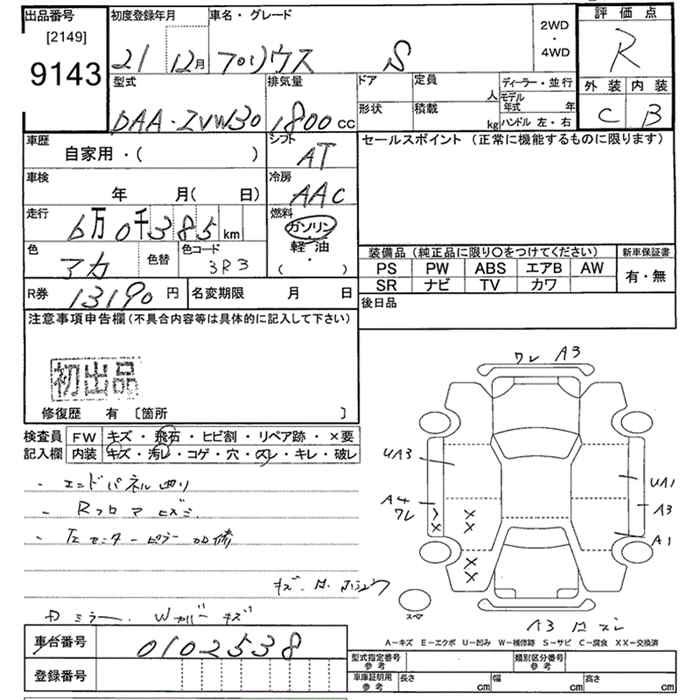 出品番号
[2149]
9143
初度登録年月
21 12月
車名・グレード
プリウス S
2WD
・
4WD
評価点
R
外装 内装
C B
型式
DAA-ZVW30
排気量
1800 CC
ドア
形状
定員
人
積載
kg
ディーラー・並行
モデル
年式 年
ハンドル 左・右
車歴
自家用・( )
シフト
AT
セールスポイント (正常に機能するものに限ります)
車検
年 月( 日)
冷房
AAC
走行
6万0千385km
燃料
ガソリン
・
軽油
( ・ )
色
アカ
色替
色コード
3R3
装備品 (純正品に限り○をつけてください)
PS PW ABS エアB AW
SR ナビ TV カワ
新車保証書
有・無
R券 13190円
名変期限 月 日
後日品
注意事項申告欄 (不具合内容等は具体的に記入して下さい)
初出品
修復歴 有 〔箇所 〕
検査員
記入欄
FW キズ・飛石・ヒビ割・リペア跡・×要
内装 キズ・汚レ・コゲ・穴・スレ・キレ・破レ
- エンドパネル
- Rフロア
- センターピラー
ミラー カバー キズ
ワレ A3
UA3
A4
ワレ
UA1
A3
A1
A3
スペア
A-キズ E-エクボ U-凹み W-補修跡 S-サビ C-腐食 XX-交換済
車台番号
0102538
登録番号
型式指定番号
参考
類別区分番号
参考
車庫証明用
参考
長さ cm
幅 cm
高さ cm